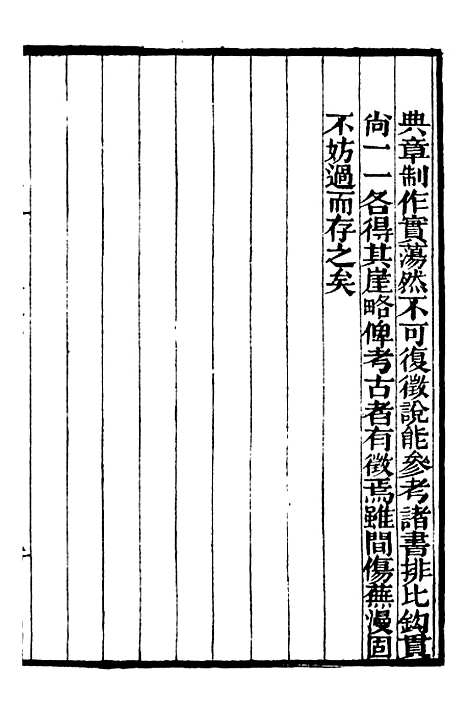 典章制作實蕩然不可復徵說能參考諸書排比鈎貫
尙一一各得其崖略俾考古者有徵焉雖間傷蕪漫固
不妨過而存之矣